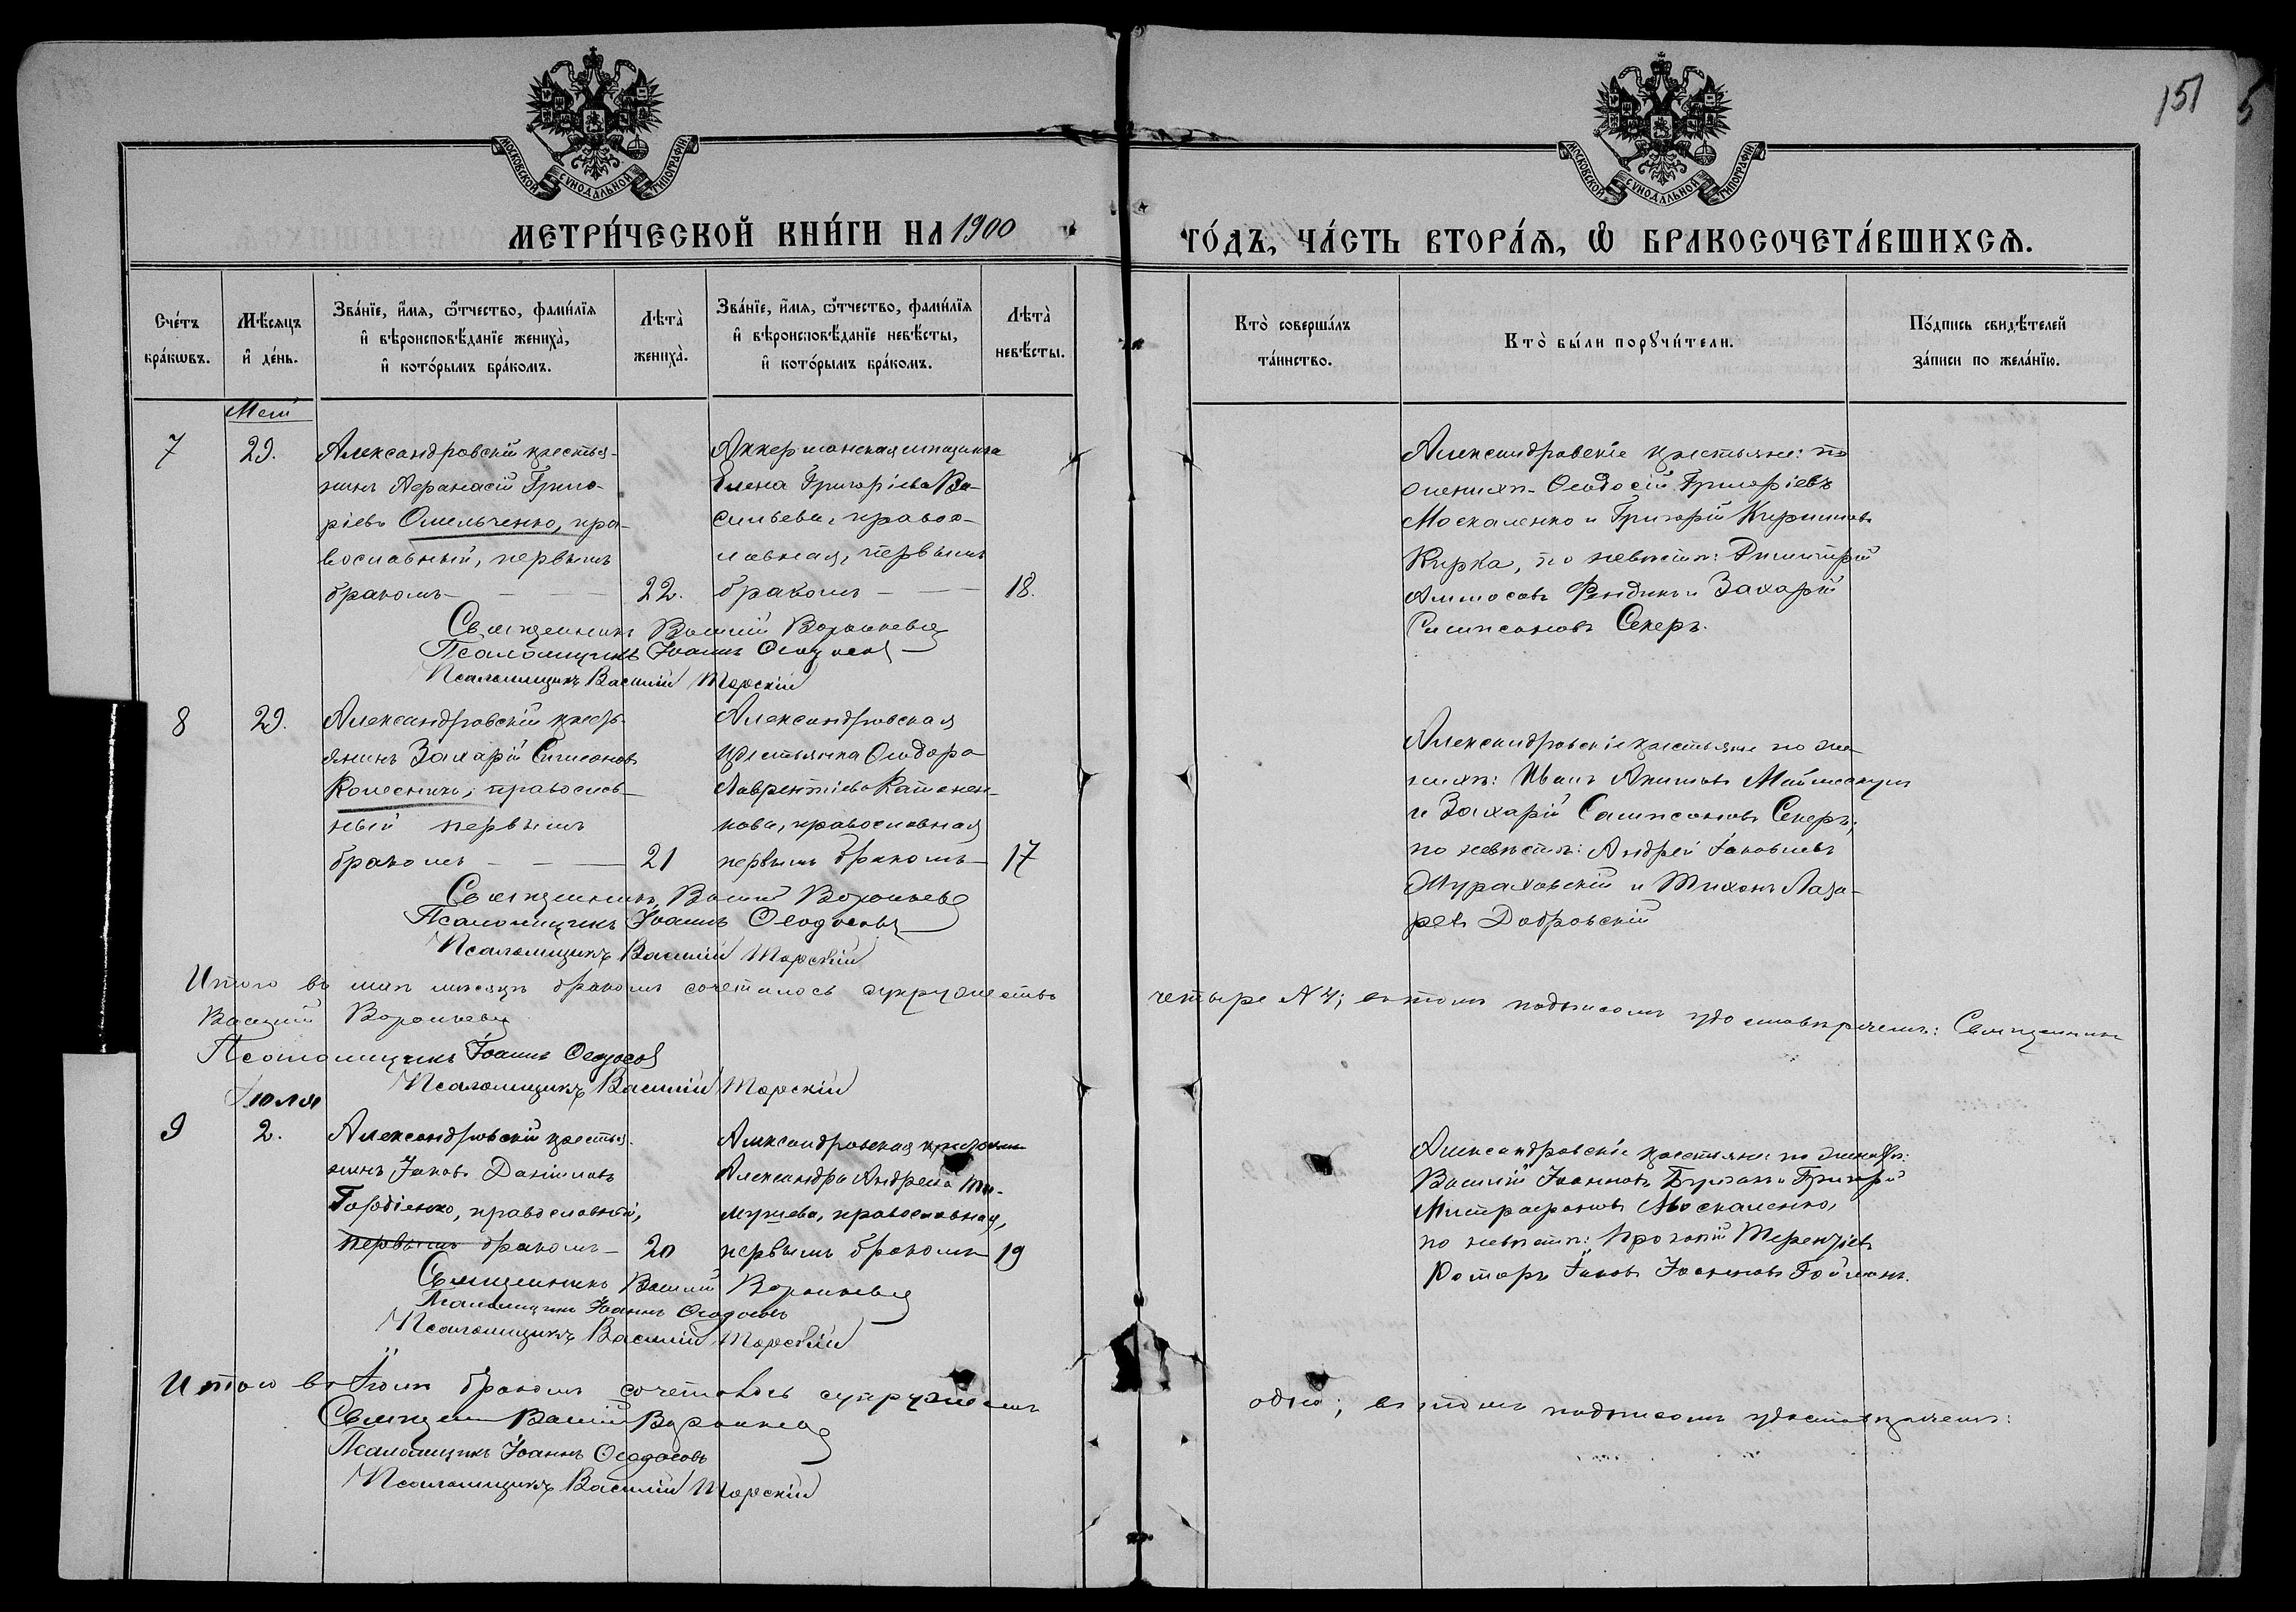 151
5
МОСКОВСКОЙ СѴНОДАЛЬНОЙ ТИПОГРАФІИ
МОСКОВСКОЙ СѴНОДАЛЬНОЙ ТИПОГРАФІИ
МЕТРИ́ЧЕСКОЙ КНИ́ГИ НА 1900 ГО́ДЪ, ЧА́СТЬ ВТОРА́Ѧ, Ѽ БРАКОСОЧЕТА́ВШИХСѦ.
Сче́тъ
бра́кѡвъ.
Мѣ́сяцъ
и҆ де́нь.
Зва́нїе, и҆́мя, ѻ҆́тчество, фами́лїя
и҆ вѣроисповѣ́данїе жениха̀,
и҆ кото́рымъ бра́комъ.
Лѣта̀
жениха̀.
Зва́нїе, и҆́мя, ѻ҆́тчество, фами́лїя
и҆ вѣроисповѣ́данїе невѣ́сты,
и҆ кото́рымъ бра́комъ.
Лѣта̀
невѣ́сты.
Кто̀ соверша́лъ
та́инство.
Кто̀ бы́ли порꙋчи́тели.
По́дпись свидѣ́телей
за́писи по жела́нїю.
Май
7
29.
Александровскій крестья-
нинъ Аѳанасій Григо-
ріевъ Омельченко, пра-
вославный, первымъ
бракомъ
22.
Аккерманская мещанка
Елена Григоріева Ва-
сильева, правос-
лавная, первымъ
бракомъ
18.
Александровскіе крестьяне: по
женихѣ Ѳеодосій Григоріевъ
Москаленко и Григорій Кирилловъ
Кирка, по невѣстѣ: Димитрій
Аммосовъ Фендикъ и Захарій
Сампсоновъ Секеръ.
Священникъ Василій Вороньевъ
Псаломщикъ Іоаннъ Ѳеодосовъ
Псаломщикъ Василій Торскій
8
29.
Александровскій кресть-
янинъ Захарій Симеоновъ
Колесникъ, православ-
ный первымъ
бракомъ
21
Александровская
крестьянка Ѳеодора
Лаврентіева
кова, православная
первымъ бракомъ
17
Александровскіе крестьяне по же-
нихѣ: Иванъ Акимовъ
и Захарій Сампсоновъ Секеръ;
по невѣстѣ: Андрей Іаковлевъ
Мураховскій и Тихонъ Лаза-
ревъ Добровскій
Священникъ Василій Вороньевъ
Псаломщикъ Іоаннъ Ѳеодосовъ
Псаломщикъ Василій Торскій
Итого въ маѣ мѣсяцѣ бракомъ сочеталось супружествъ четыре № 4; въ томъ подписомъ удостовѣряемъ: Священникъ
Василій Вороньевъ
Псаломщикъ Іоаннъ Ѳеодосовъ
Псаломщикъ Василій Торскій
Іюля
9
2.
Александровскій крестья-
нинъ Іаковъ Даніиловъ
Гордіенко, православный,
первымъ бракомъ
20
Александровская
Александра Андреева Ти-
мушева, православная,
первымъ бракомъ
19
Александровскіе крестьяне по женихѣ:
Василій Іоанновъ и Григорій
Митрофановъ Москаленко,
по невѣстѣ: Прокопій Терентіевъ
Ротаръ Іаковъ Іоанновъ Гойманъ.
Священникъ Василій Вороньевъ
Псаломщикъ Іоаннъ Ѳеодосовъ
Псаломщикъ Василій Торскій
Итого въ Іюлѣ бракомъ сочеталось супружество одно; въ томъ подписомъ удостовѣряемъ:
Священ Василій Вороньевъ
Псаломщикъ Іоаннъ Ѳеодосовъ
Псаломщикъ Василій Торскій